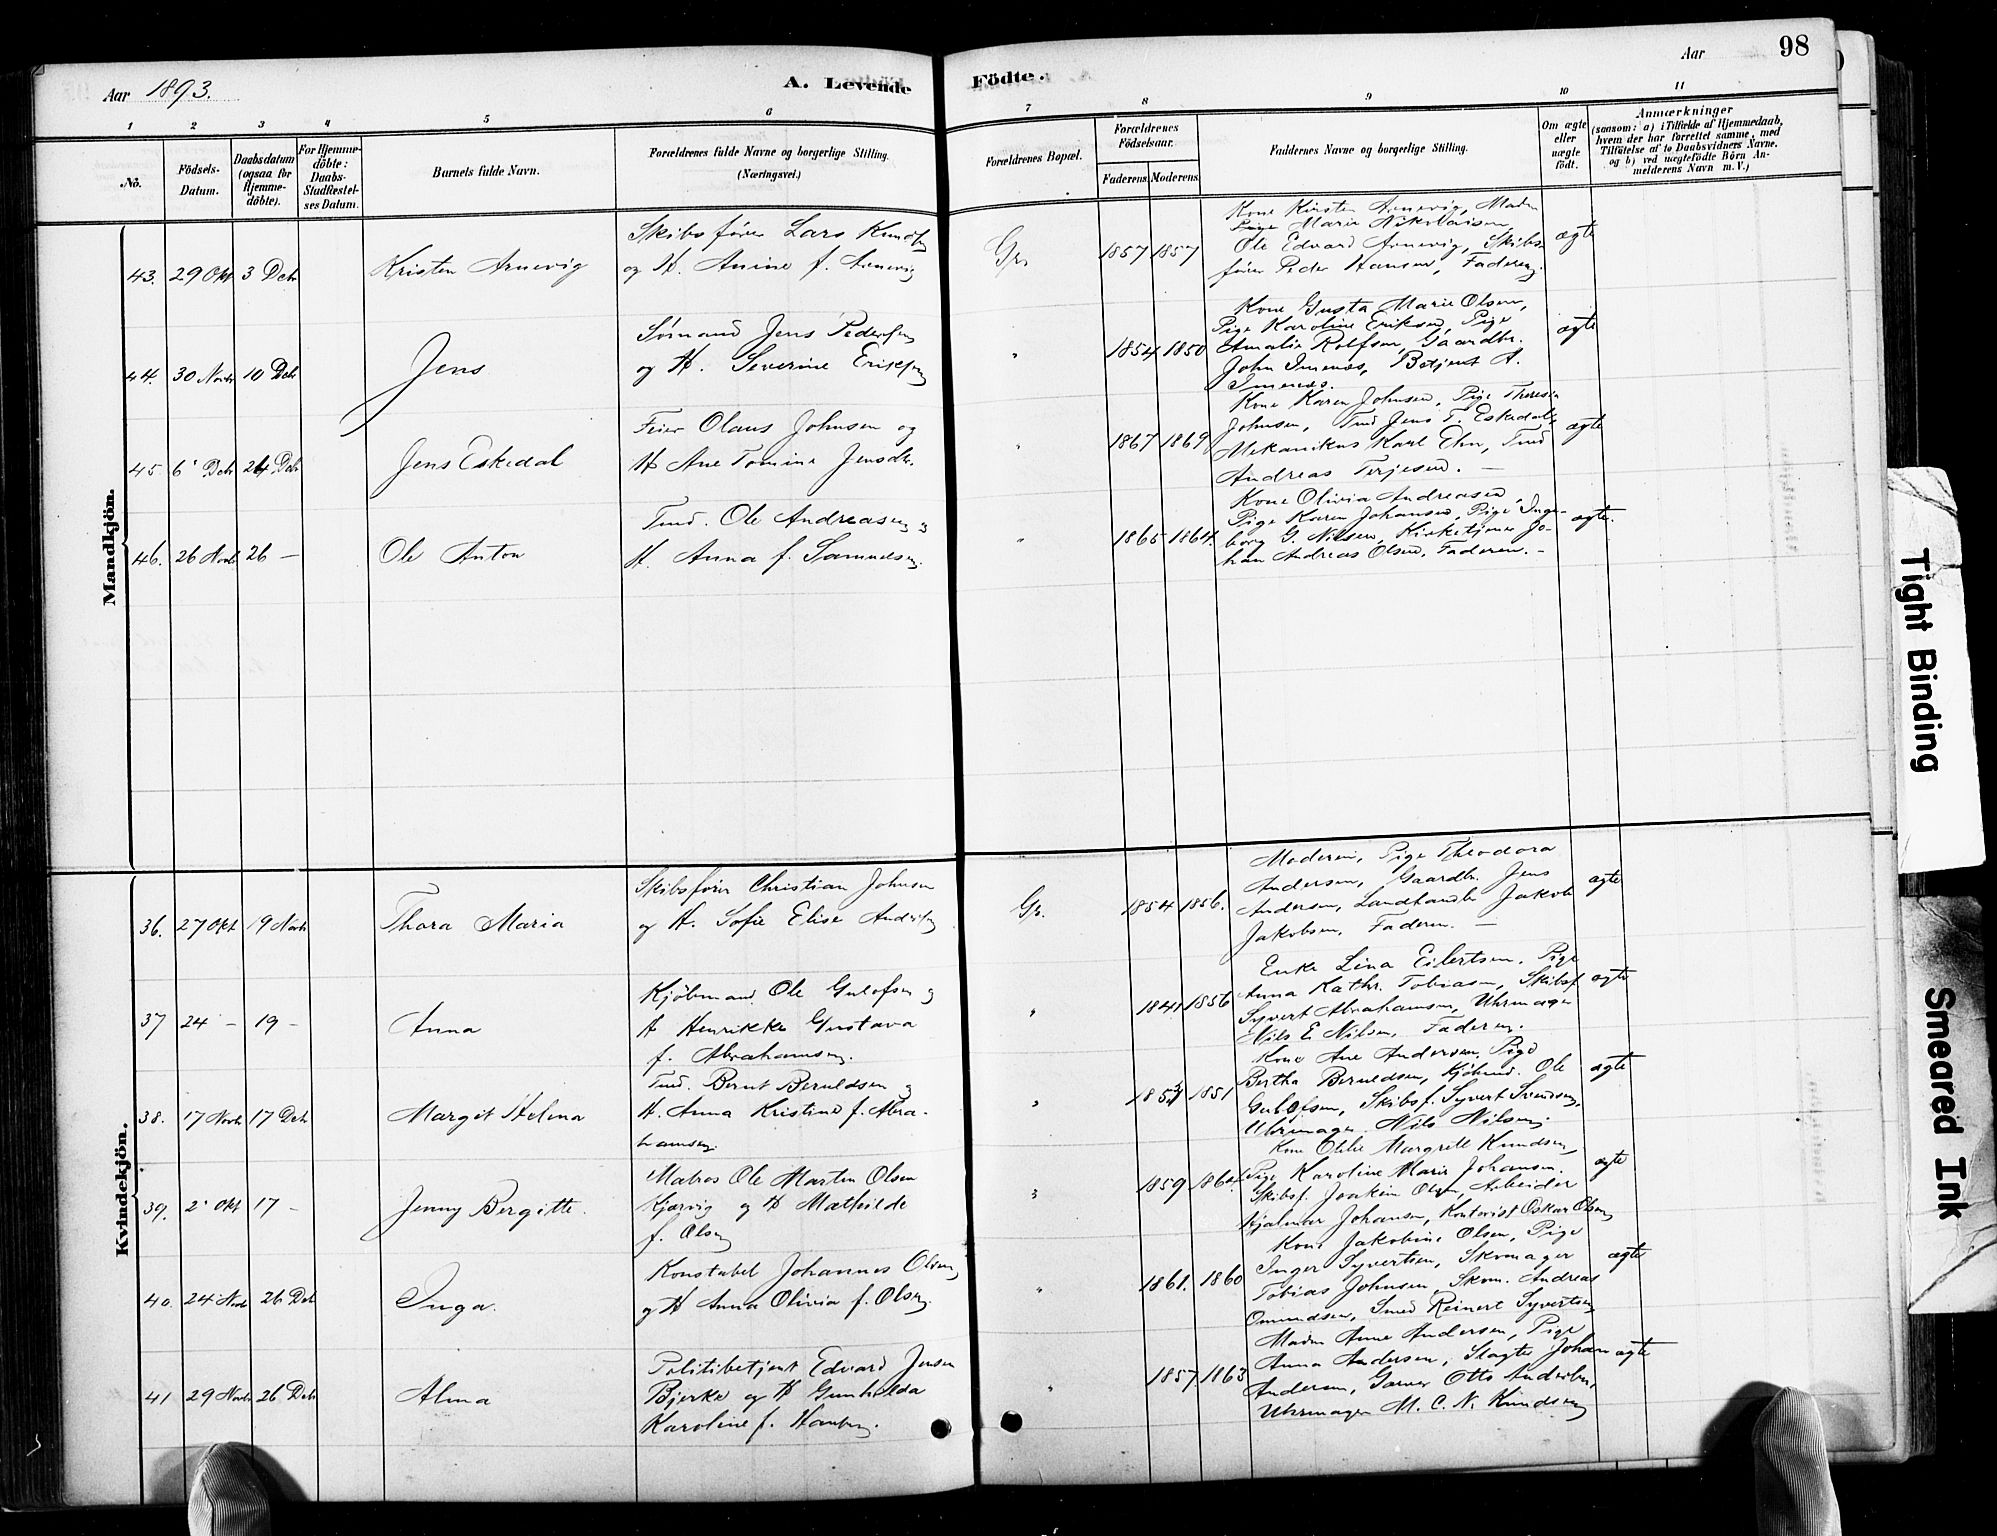 Aar 1893.
A. Levende
Födte.
Aar
98
1 2 3 4 5 6 7 8 9 10 11
No.
Födsels-Datum.
Daabsdatum (ogsaa for Hjemme-döbte).
For Hjemme-döbte: Daabs-Stadfæstel-ses Datum.
Barnets fulde Navn.
Forældrenes fulde Navne og borgerlige Stilling.
(Næringsvei.)
Forældrenes Bopæl.
Forældrenes Födselsaar.
Faderens. Moderens.
Faddernes Navne og borgerlige Stilling.
Om ægte eller uægte födt.
Anmærkninger
(saasom: a) i Tilfælde af Hjemmedaab, hvem der har forrettet samme, med Tilföielse af to Daabsvidners Navne, og b) ved uægtefödte Börn An-melderens Navn m. V.)
Mandkjön.
43. 29 Okt 3 Debr Kristen Arnevig
Skibsfører Lars Knudsen
og H. Anine f. Arnevig
Gr. 1857 1857
Kone Kirsten Arnevig, Madm
Pige Marie Nikolaisen,
Ole Edvard Arnevig, Skibs-
fører Peder Hansen, Faderen.
ægte
44. 30 Novbr 10 Debr Jens
Sømand Jens Pedersen
og H. Severine Eriksen
" 1854 1850
Kone Gusta Marie Olsen,
Pige Karoline Eriksen, Pige
Amalie Rolfsen, Gaardbr.
John Imenæs, Betjent A.
Imenæs.
ægte
45. 6' Debr 26 Debr Jens Eskedal
Feier Olaus Johnsen og
H Ane Tomine Jensdr.
" 1867 1869
Kone Karen Johnsen, Pige Theresia
Johnsen, Tmd Jens T. Eskedal,
Mekanikus Karl Ehn, Tmd
Andreas Terjesen. —
ægte
46. 26 Novbr 26 — Ole Anton
Tmd. Ole Andreasen og
H. Anna f. Samuelsen.
" 1865 1864.
Kone Olivia Andreasen,
Pige Karen Johansen, Pige Inge-
borg G. Nilsen, Kirketjener Jo-
han Andreas Olsen, Faderen. —
ægte.
Kvindekjön.
36. 27 Okt 19 Novbr Thora Maria
Skibsfører Christian Johnsen
og H. Sofie Elise Andersen
Gr. 1854 1856.
Moderen, Pige Theodora
Andersen, Gaardbr. Jens
Andersen, Landhandler Jakob
Jakobsen, Faderen. —
ægte
37 24 — 19 — Anna
Kjøbmand Ole Gulofsen og
H Henrikke Gustava
f. Abrahamsen.
" 1841 1856
Enke Lina Eilertsen, Pige
Anna Kathr. Tobiasen, Skibsf.
Syvert Abrahamsen, Uhrmager
Nils E Nilsen, Faderen.
ægte
38. 17 Novbr 17 Debr Margit Helena
Tmd. Bernt Berntdsen og
H. Anna Kristine f. Abra-
hamsen.
" 1853 1851
Kone Ane Andersen, Pige
Bertha Berntdsen, Kjøbmd. Ole
Gulofsen, Skibsf. Syvert Svendsen,
Uhrmager Nils Nilsen.
ægte
39. 2' Okt 17 — Jenny Bergitte.
Matros Ole Martin Olsen
Kjærvig og H Mathilde
f. Olsen
" 1859 1864.
Kone Otilie Margrethe Knudsen,
Pige Karoline Marie Johansen.
Skibsf. Joakim Olsen, Arbeider
Hjalmar Johansen, Kontorist Oskar Olsen
ægte
40. 24 Novbr 26 Debr Inga.
Konstabel Johannes Olsen,
og H Anna Olivia f. Olsen.
" 1861. 1860
Kone Jakobine Olsen, Pige
Inger Syvertsen, Skomager
Tobias Johnsen, Skom. Andreas
Omundsen, Smed Reinert Syvertsen
ægte
41 29 Novbr 26 Debr Alma
Politibetjent Edvard Jensen
Bjerke og H Gunhilda
Karoline f. Hansen.
" 1857. 1863
Madm Anne Andersen, Pige
Anna Andersen, Slagter Johan
Andersen, Garver Otto Andersen,
Uhrmager M. C. N. Knudsen
ægte
Tight Binding
Smeared Ink